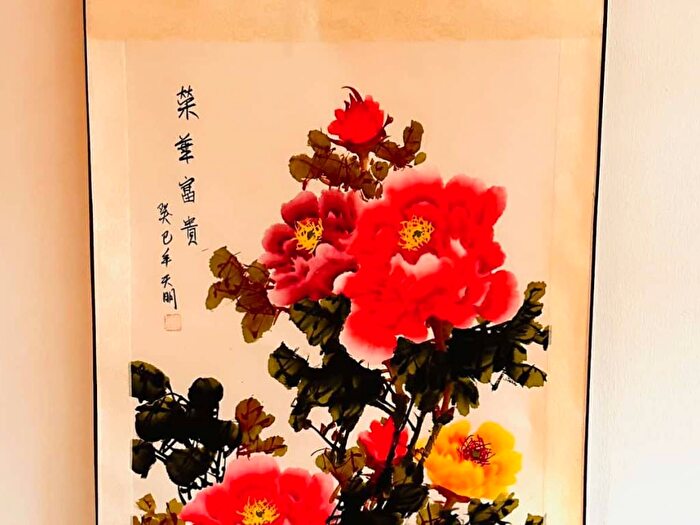 榮華富貴
癸巳年天明